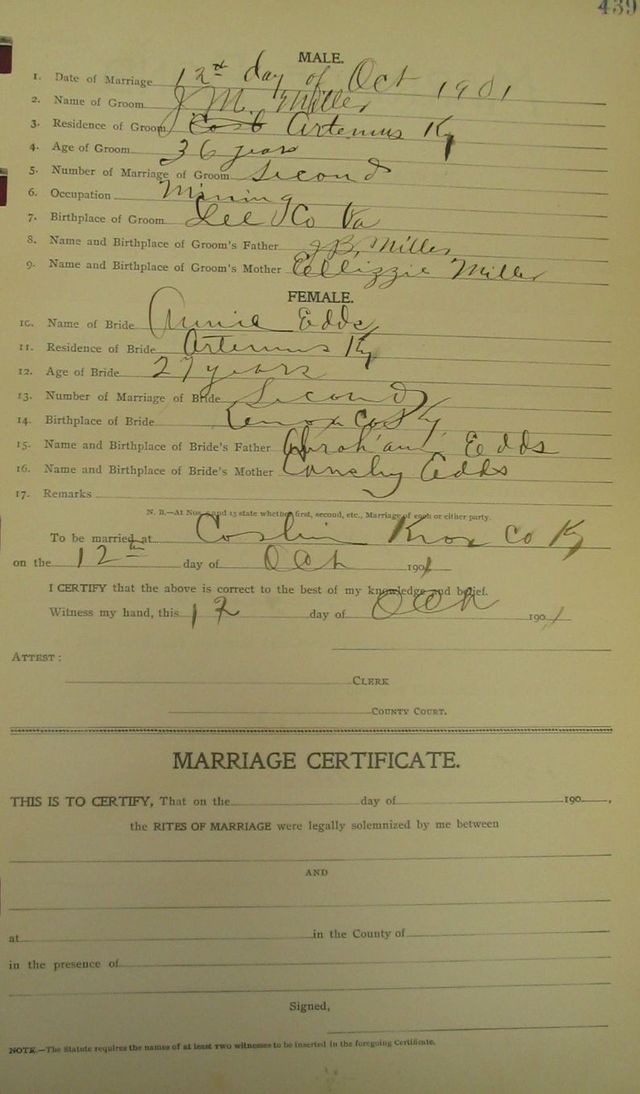 439
MALE.
1. Date of Marriage 12th day of Oct 1901
2. Name of Groom J M. Miller
3. Residence of Groom Artemus Ky
4. Age of Groom 36 years
5. Number of Marriage of Groom Second
6. Occupation Mining
7. Birthplace of Groom Lee Co Va
8. Name and Birthplace of Groom's Father J B. Miller
9. Name and Birthplace of Groom's Mother Miller
FEMALE.
10. Name of Bride Annie Edds
11. Residence of Bride Artemus Ky
12. Age of Bride 27 years
13. Number of Marriage of Bride Second
14. Birthplace of Bride Knox Co Ky
15. Name and Birthplace of Bride's Father Abraham Edds
16. Name and Birthplace of Bride's Mother Edds
17. Remarks
N. B.—At Nos. 5 and 13 state whether first, second, etc., Marriage of each or either party.
To be married at Knox Co Ky
on the 12th day of Oct 1901
I CERTIFY that the above is correct to the best of my knowledge and belief.
Witness my hand, this 12 day of Oct 1901
ATTEST:
CLERK
COUNTY COURT.
MARRIAGE CERTIFICATE.
THIS IS TO CERTIFY, That on the day of 190 ,
the RITES OF MARRIAGE were legally solemnized by me between
AND
at in the County of
in the presence of
Signed,
NOTE.—The Statute requires the names of at least two witnesses to be inserted in the foregoing Certificate.